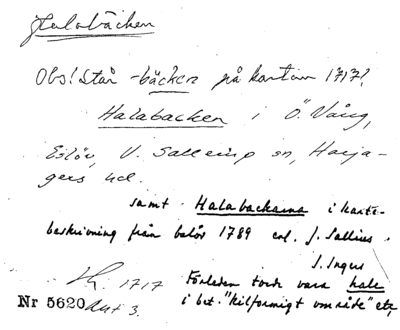 Halabäcken
Obs! Står -bäcken på kartan 1717!
Halabacken i Ö. Vång,
Eslöv, V. Sallerup sn, Harja-
gers hd.
samt Halabackarna i karte-
beskrivning från 1789 enl. J. Sallius.
I. Ingers
Förleden torde vara hale
LK. 1717
i bet. "kilformigt område" etc,
Nr 5620 Akt 3.